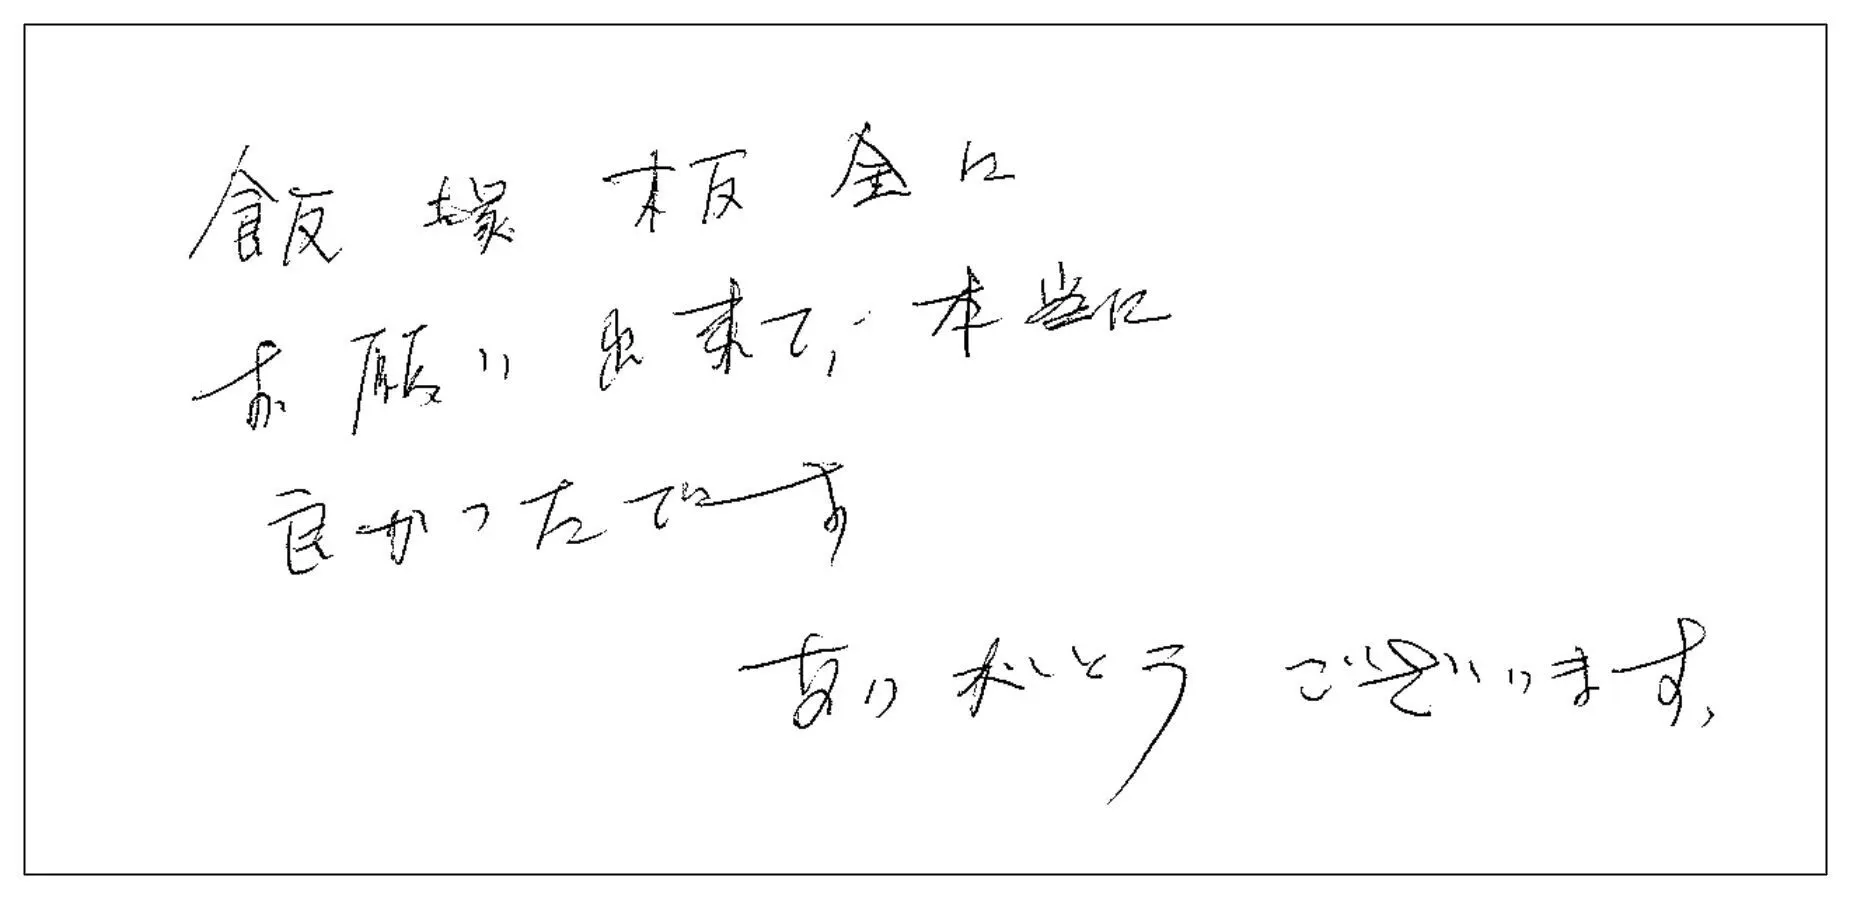 飯塚板金に
お願い出来て、本当に
良かったです
ありがとうございます、